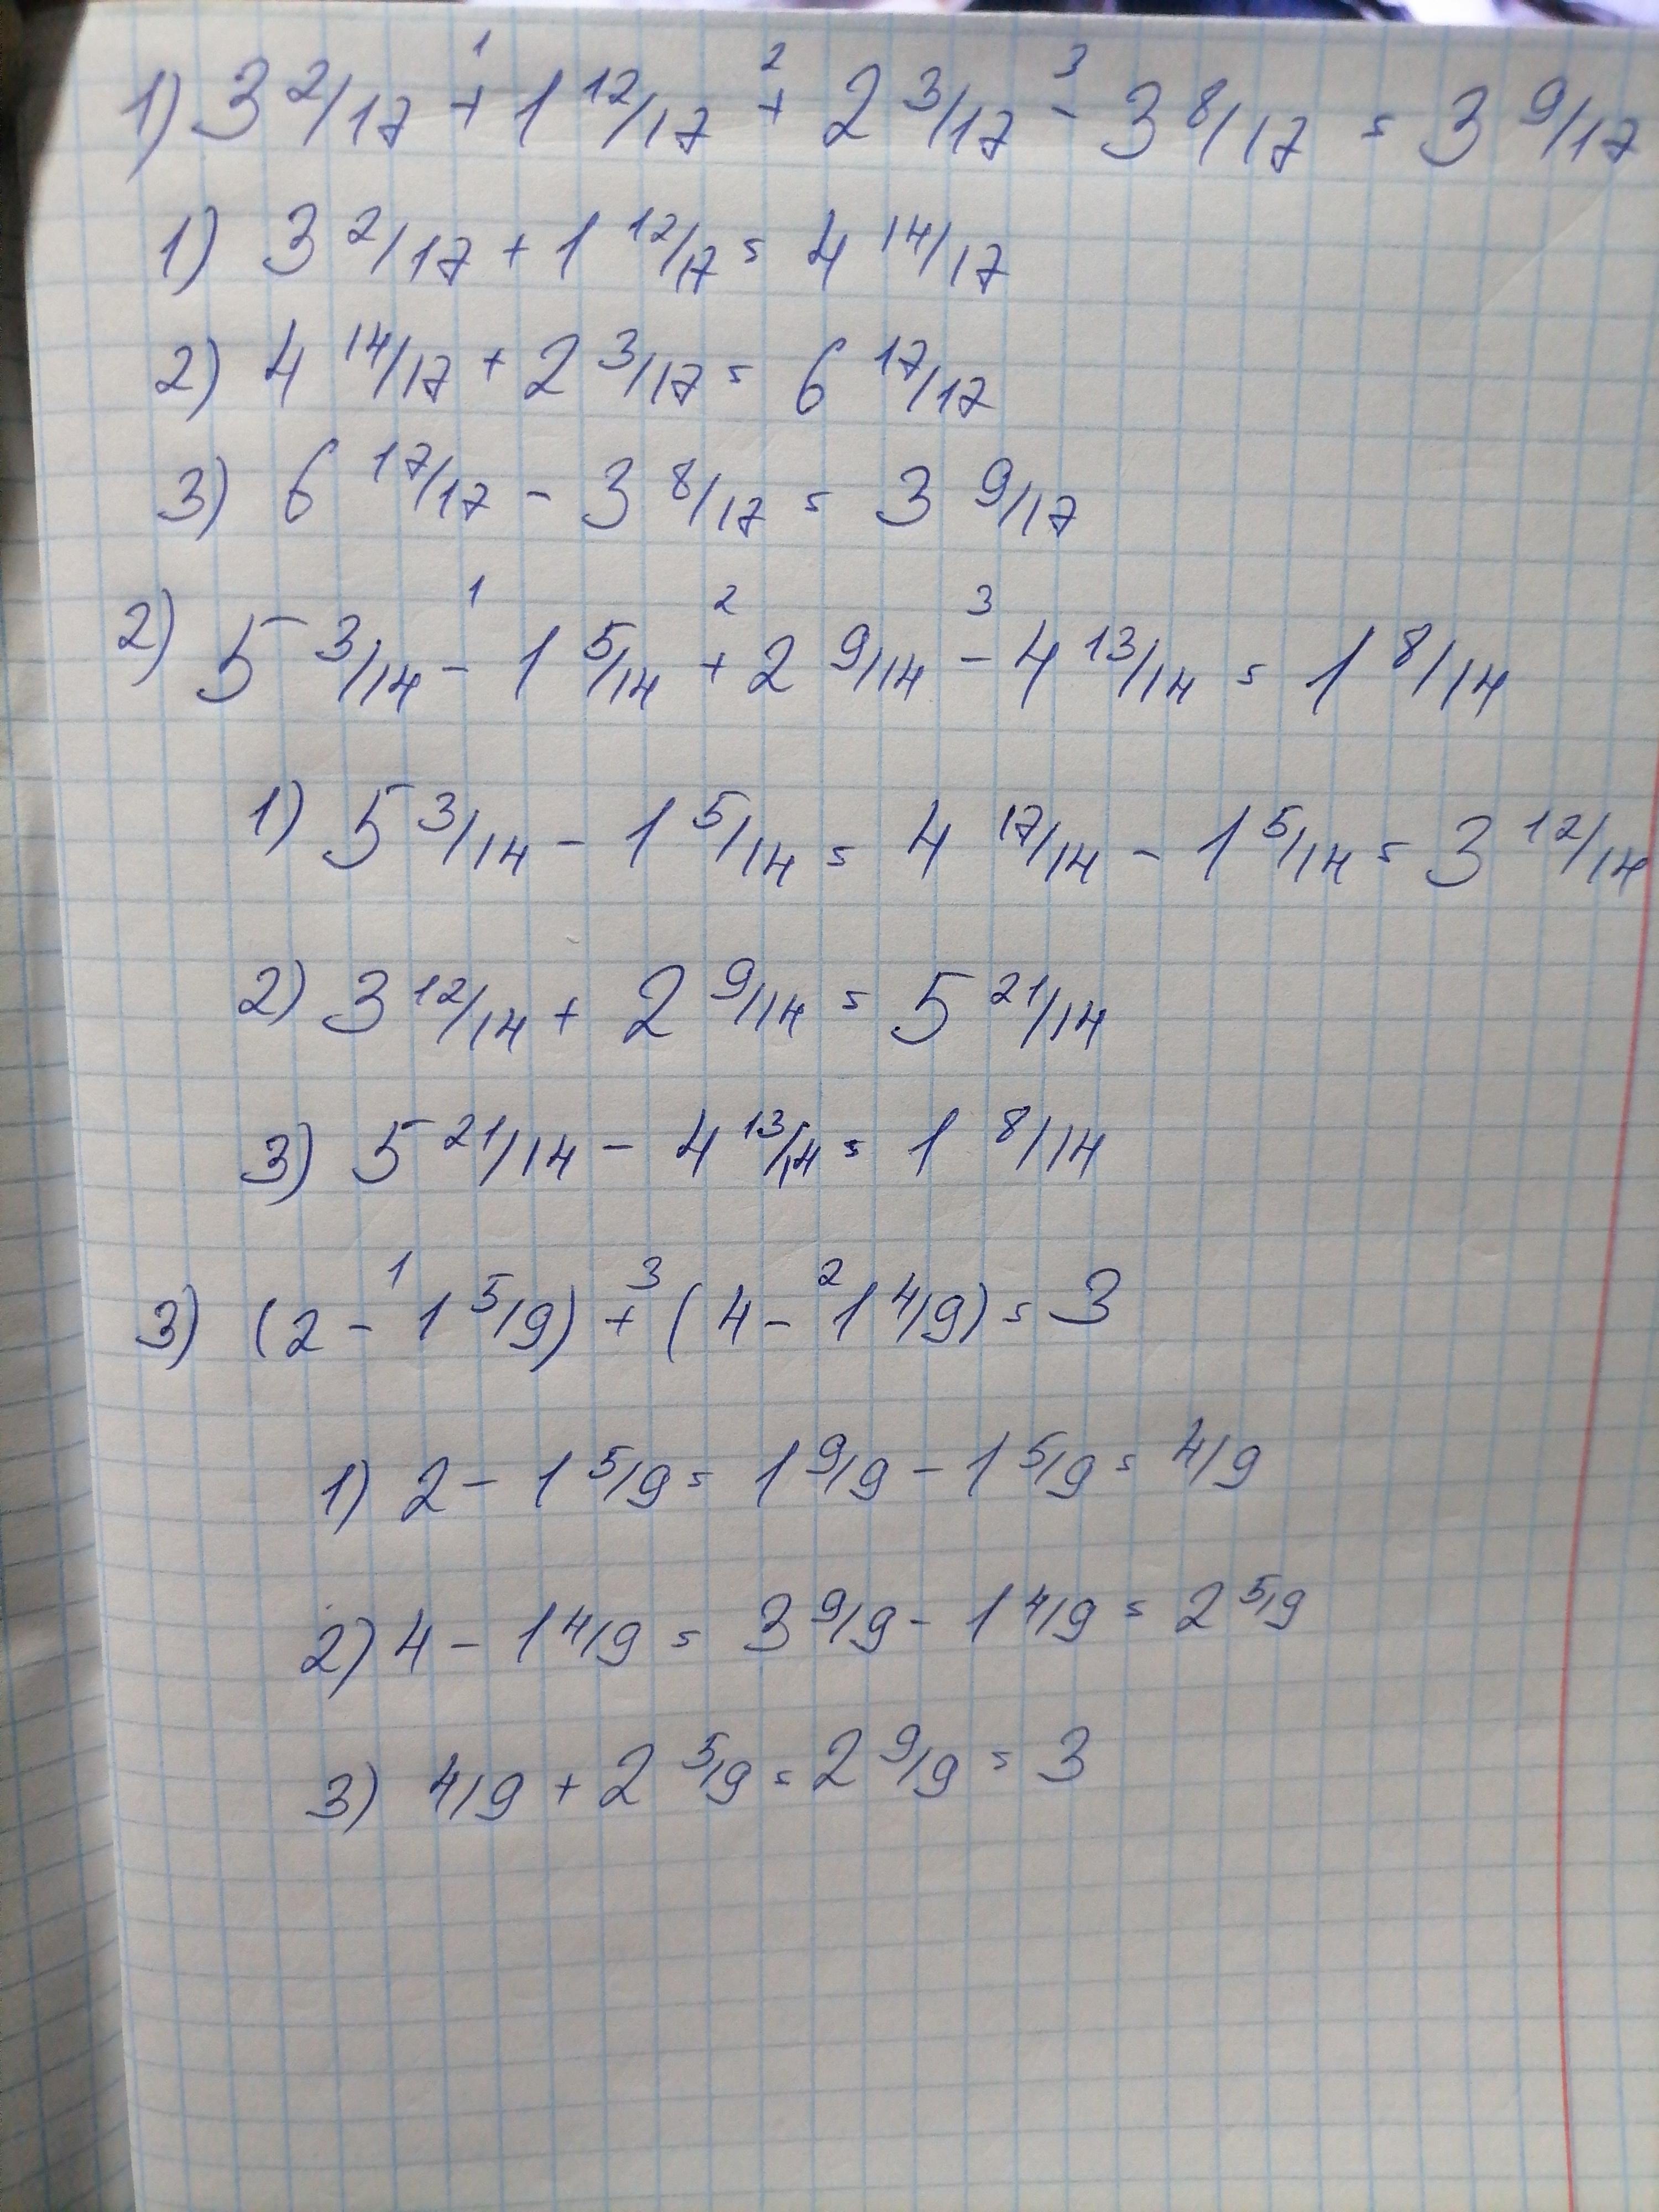 1) 3 2/17 + 1 12/17 + 2 3/17 - 3 8/17 = 3 9/17
1 2 3
1) 3 2/17 + 1 12/17 = 4 14/17
2) 4 14/17 + 2 3/17 = 6 17/17
3) 6 17/17 - 3 8/17 = 3 9/17
1 2 3
2) 5 3/14 - 1 5/14 + 2 9/14 - 4 13/14 = 1 8/14
1) 5 3/14 - 1 5/14 = 4 17/14 - 1 5/14 = 3 12/14
2) 3 12/14 + 2 9/14 = 5 21/14
3) 5 21/14 - 4 13/14 = 1 8/14
1 3 2
3) (2 - 1 5/9) + (4 - 1 4/9) = 3
1) 2 - 1 5/9 = 1 9/9 - 1 5/9 = 4/9
2) 4 - 1 4/9 = 3 9/9 - 1 4/9 = 2 5/9
3) 4/9 + 2 5/9 = 2 9/9 = 3